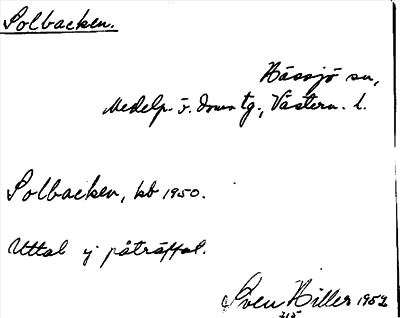 Solbacken.
Hässjö sn,
Medelp. v. domstg., Västern. l.
Solbacken, kb 1950.
Uttal ej påträffat.
Sven Hiller 1952
215